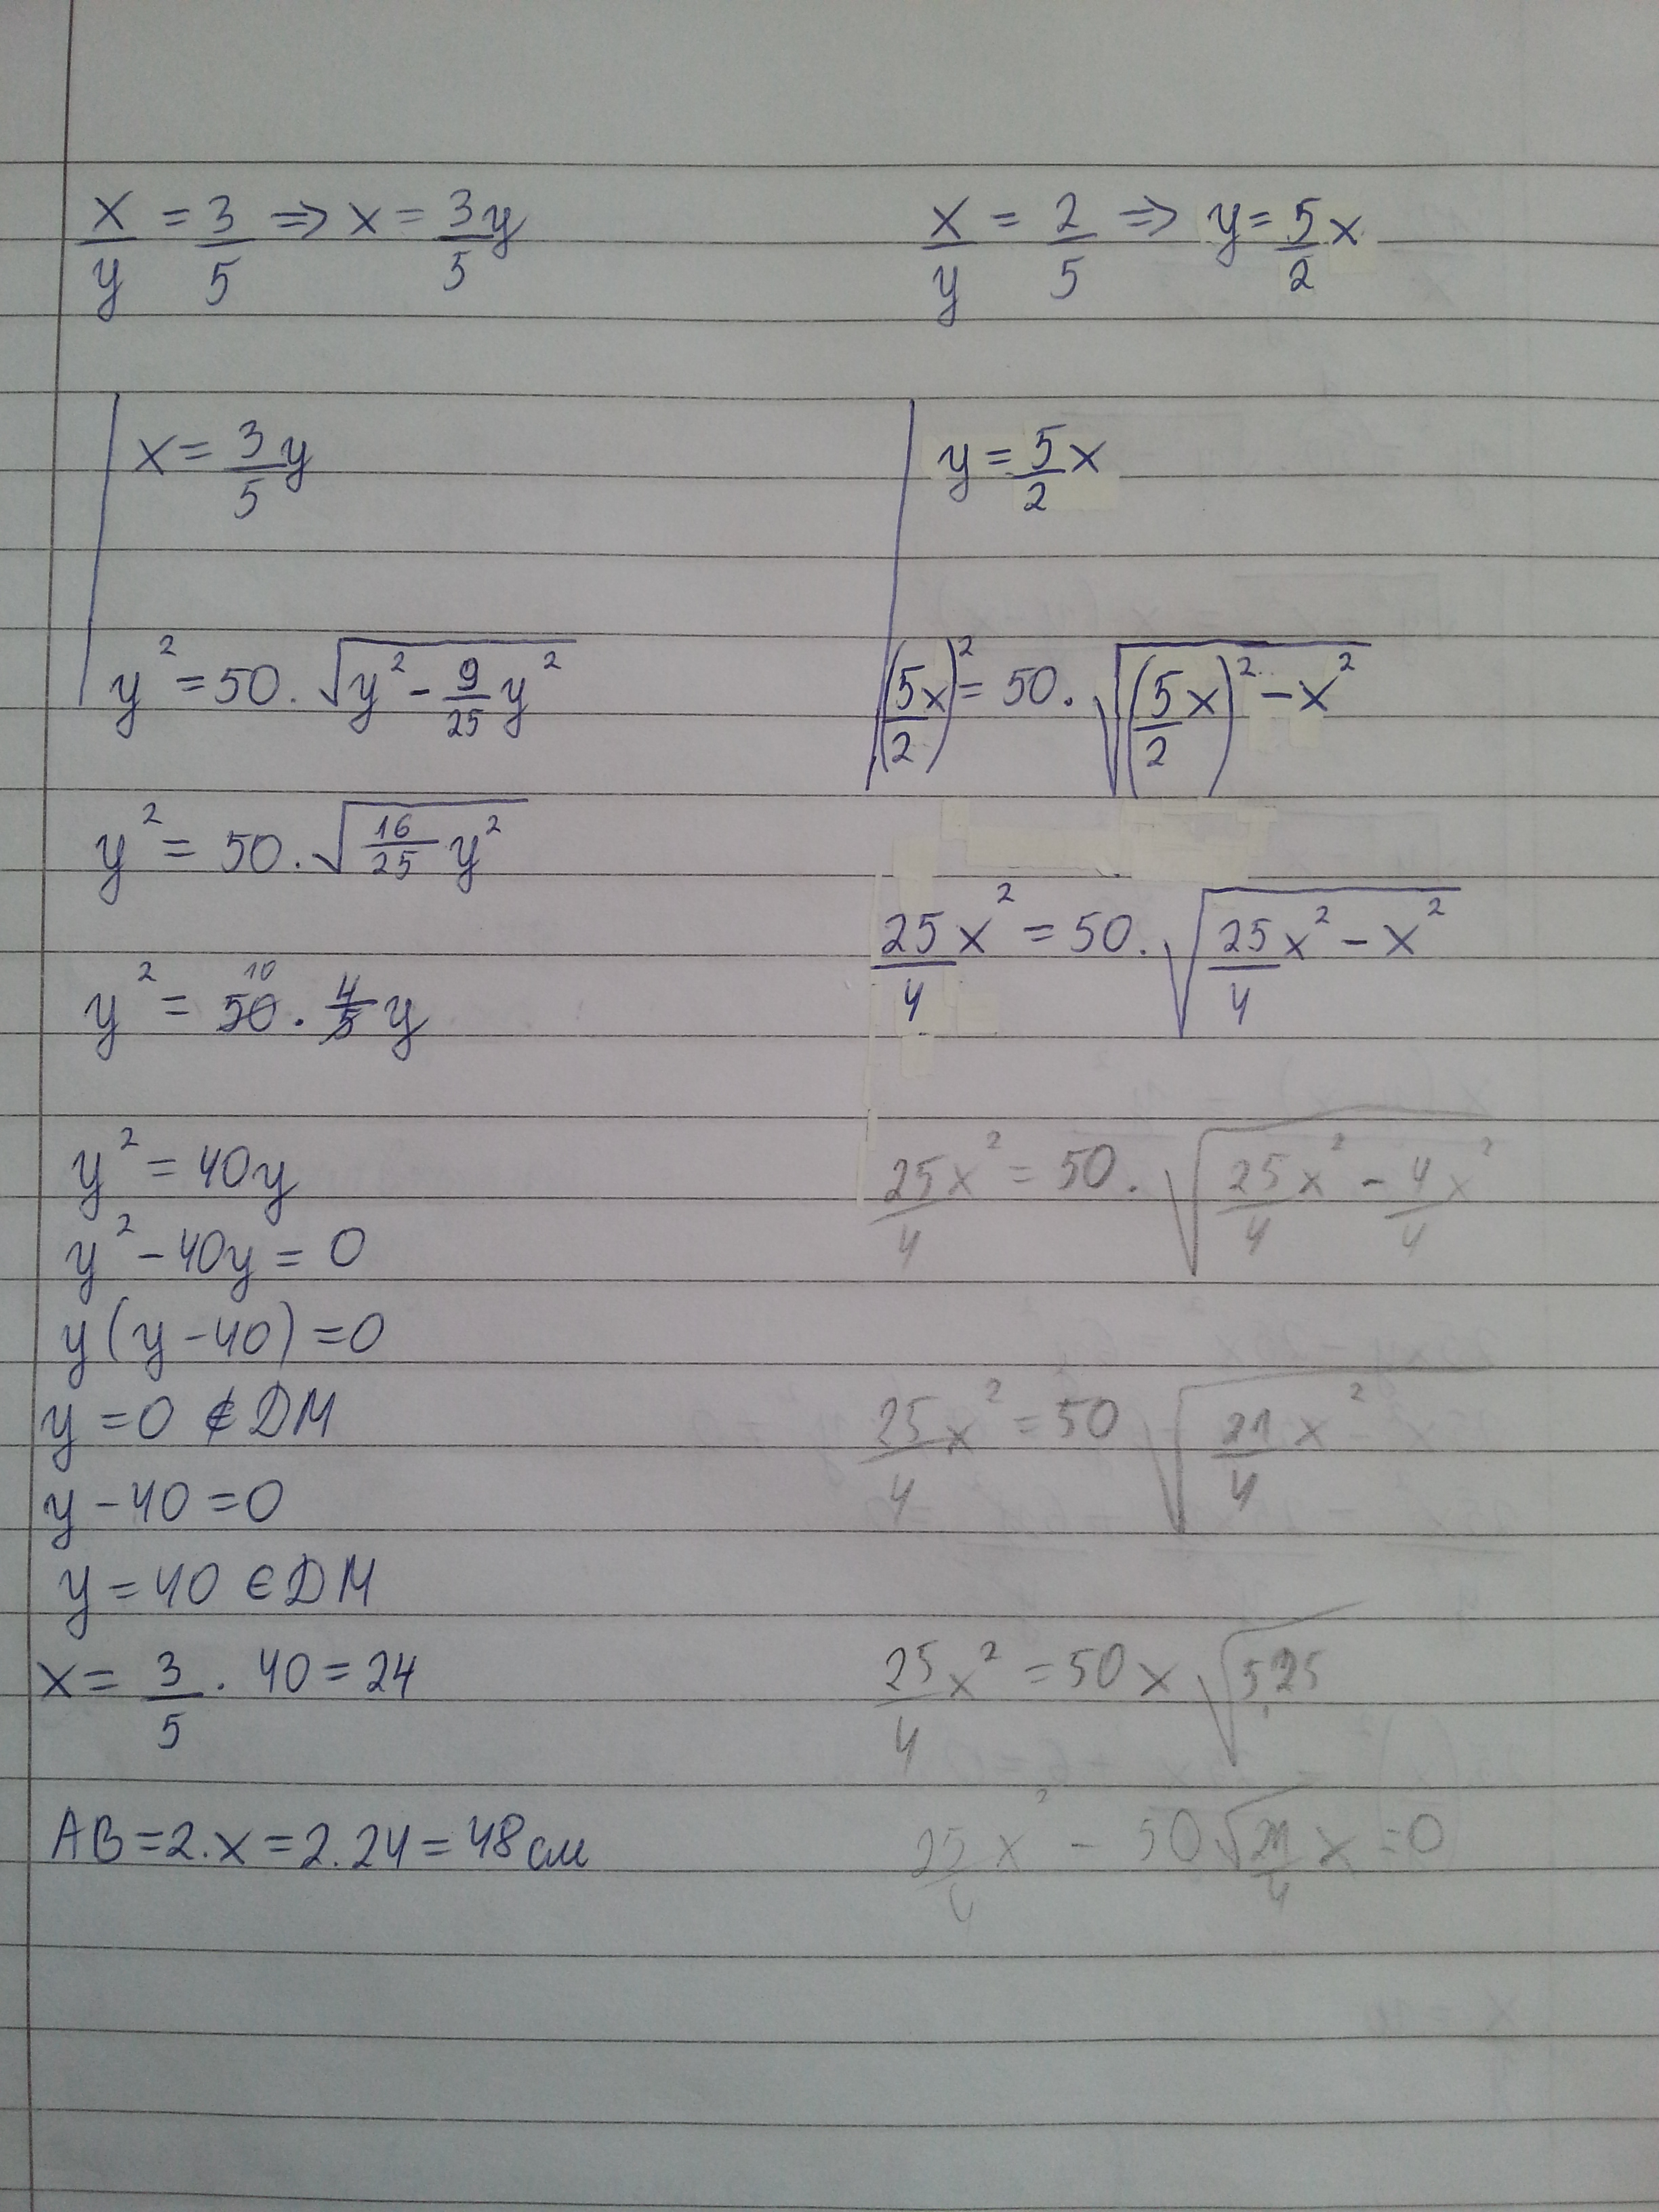 x/y = 3/5 ⇒ x = 3/5 y
x = 3/5 y
y² = 50 . √(y² - 9/25 y²)
y² = 50 . √(16/25 y²)
y² = 50 . 4/5 y
10
y² = 40y
y² - 40y = 0
y (y - 40) = 0
y = 0 ∉ DM
y - 40 = 0
y = 40 ∈ DM
x = 3/5 . 40 = 24
AB = 2 . x = 2 . 24 = 48 см
x/y = 2/5 ⇒ y = 5/2 x
y = 5/2 x
(5/2 x)² = 50 . √((5/2 x)² - x²)
25/4 x² = 50 . √(25/4 x² - x²)
25/4 x² = 50 . √(25/4 x² - 4/4 x²)
25/4 x² = 50 √(21/4 x²)
25/4 x² = 50 x √5,25
25/4 x² - 50 √(21/4) x = 0